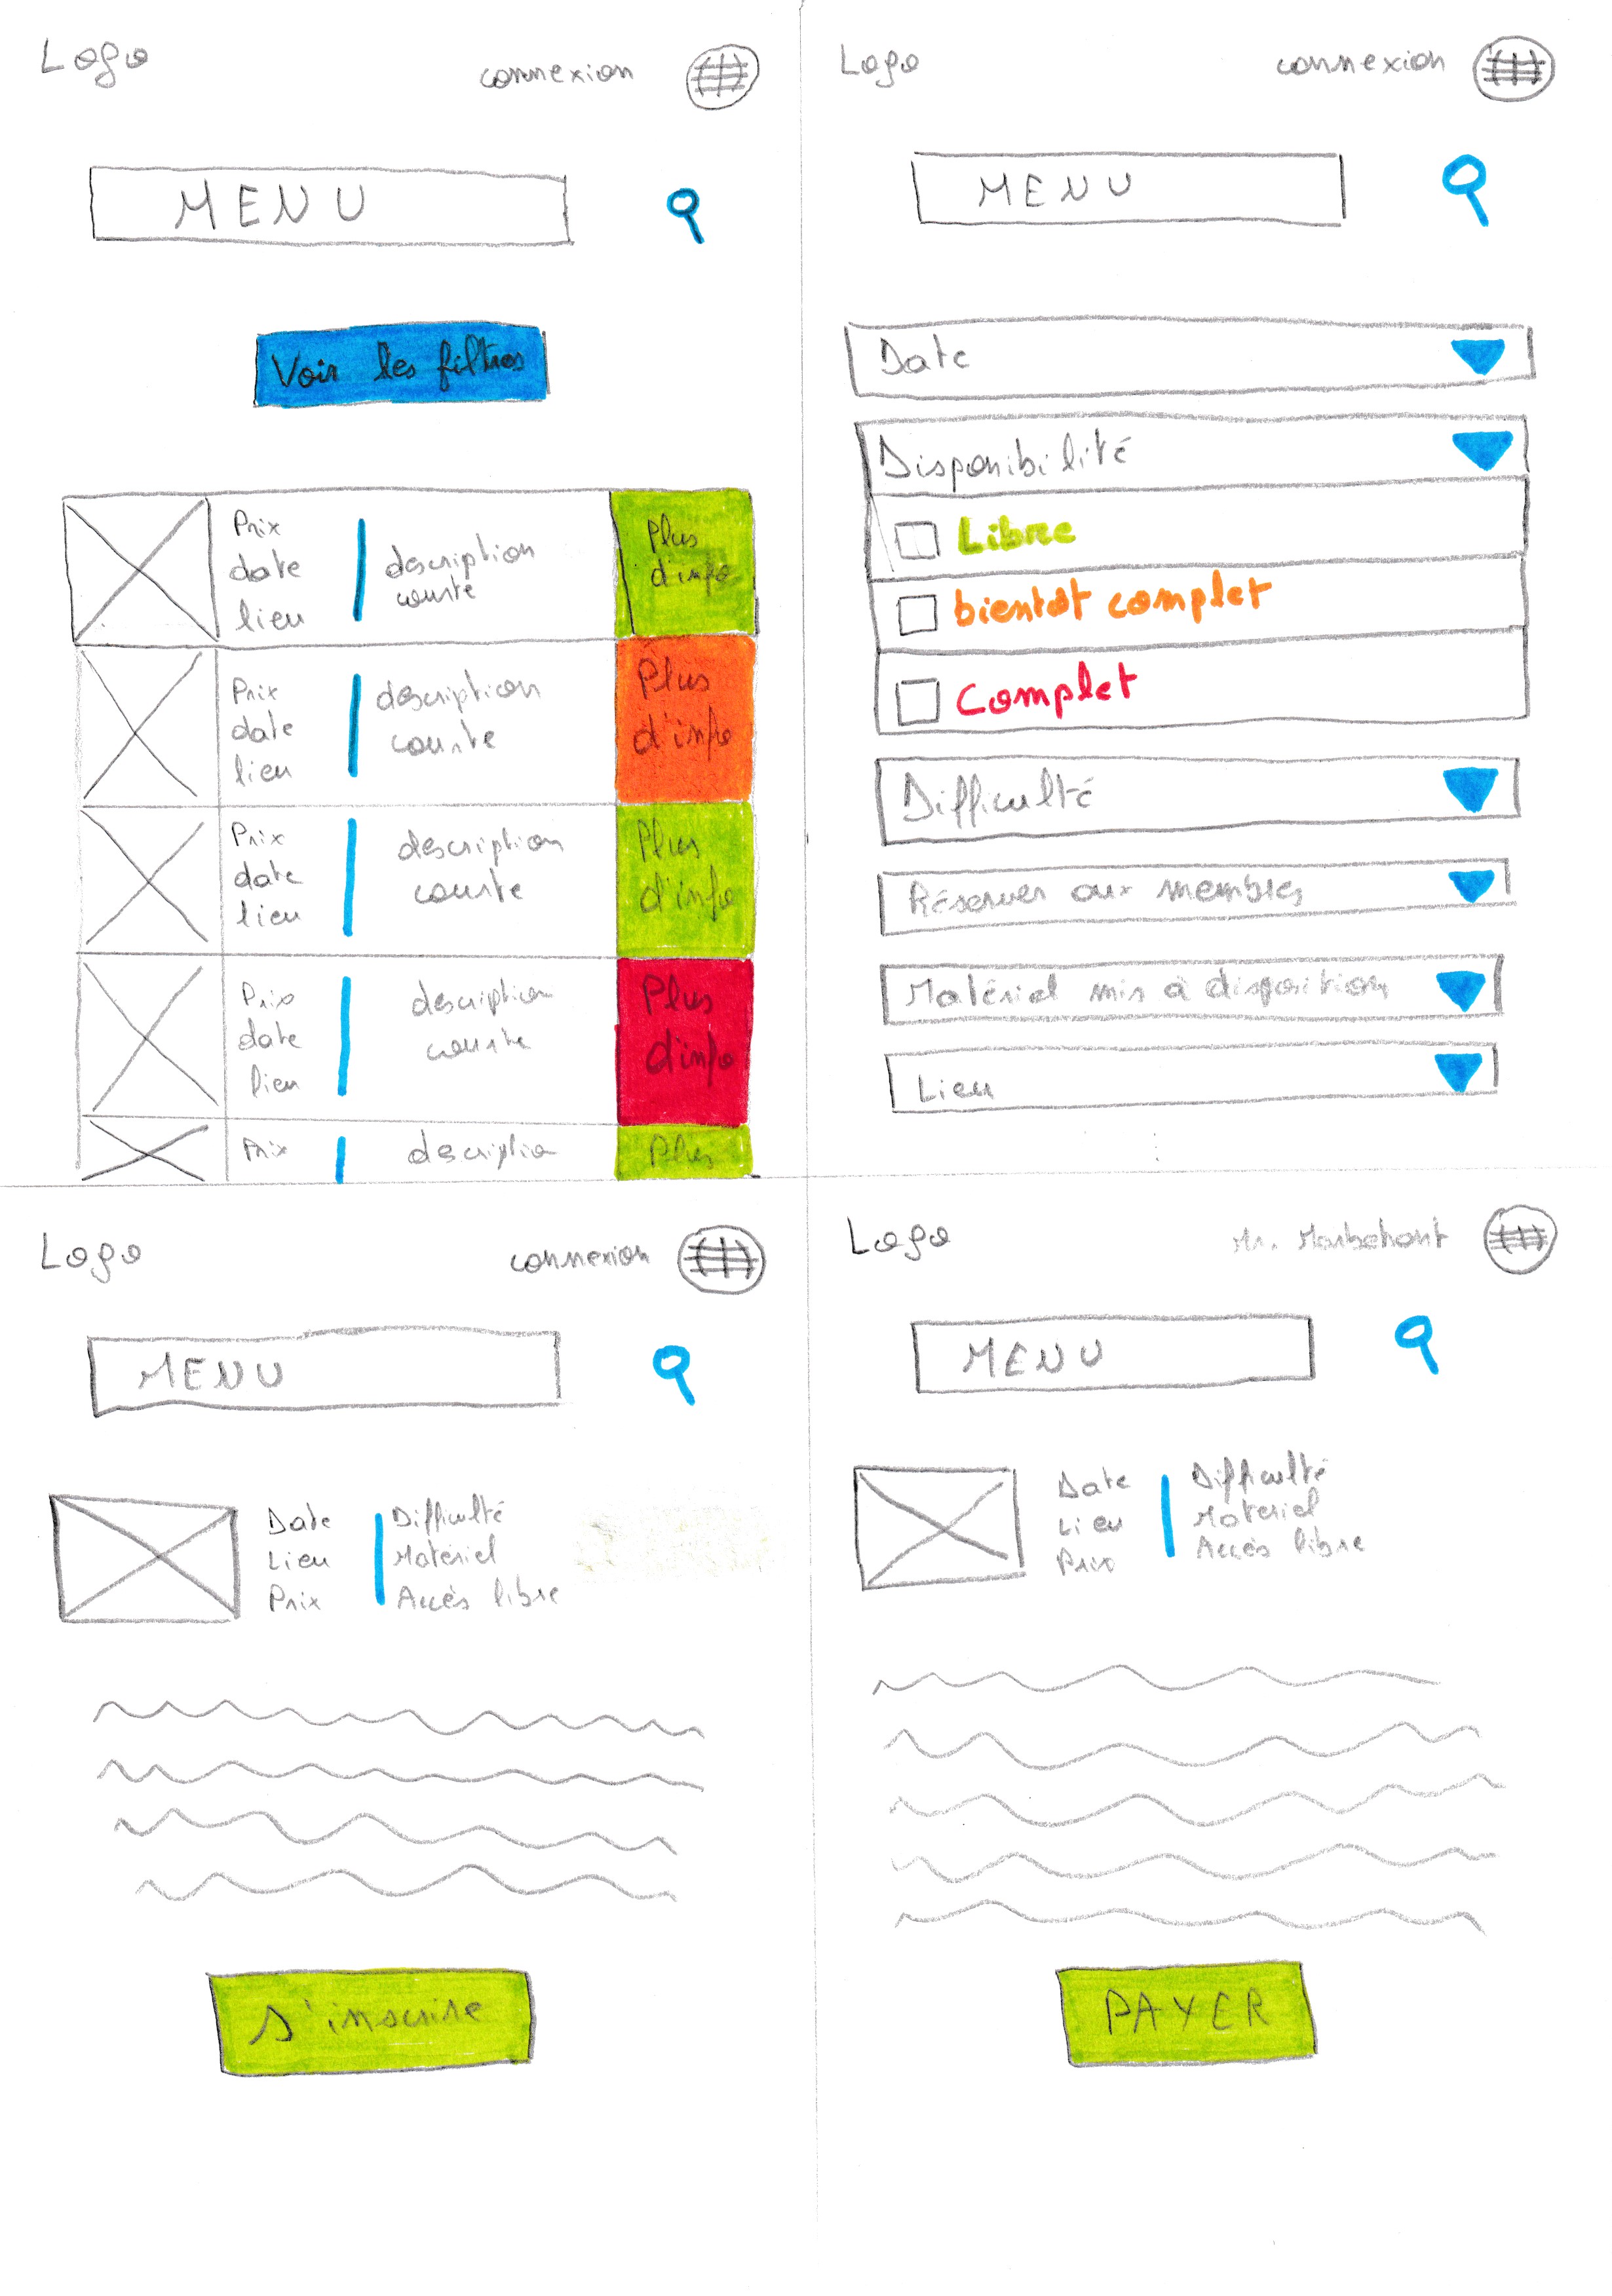 Logo
connexion
MENU
Voir les filtres
Prix
date
lieu
description
courte
Plus
d'info
Prix
date
lieu
description
courte
Plus
d'info
Prix
date
lieu
description
courte
Plus
d'info
Prix
date
lieu
description
courte
Plus
d'info
Prix
descriptio
Plus
Logo
connexion
MENU
Date
Disponibilité
Libre
bientot complet
Complet
Difficulté
Réserver aux membres
Matériel mis à disposition
Lieu
Logo
connexion
MENU
Date
Lieu
Prix
Difficulté
Matériel
Accès libre
S'inscrire
Logo
Mr.
MENU
Date
Lieu
Prix
Difficulté
Matériel
Accès libre
PAYER